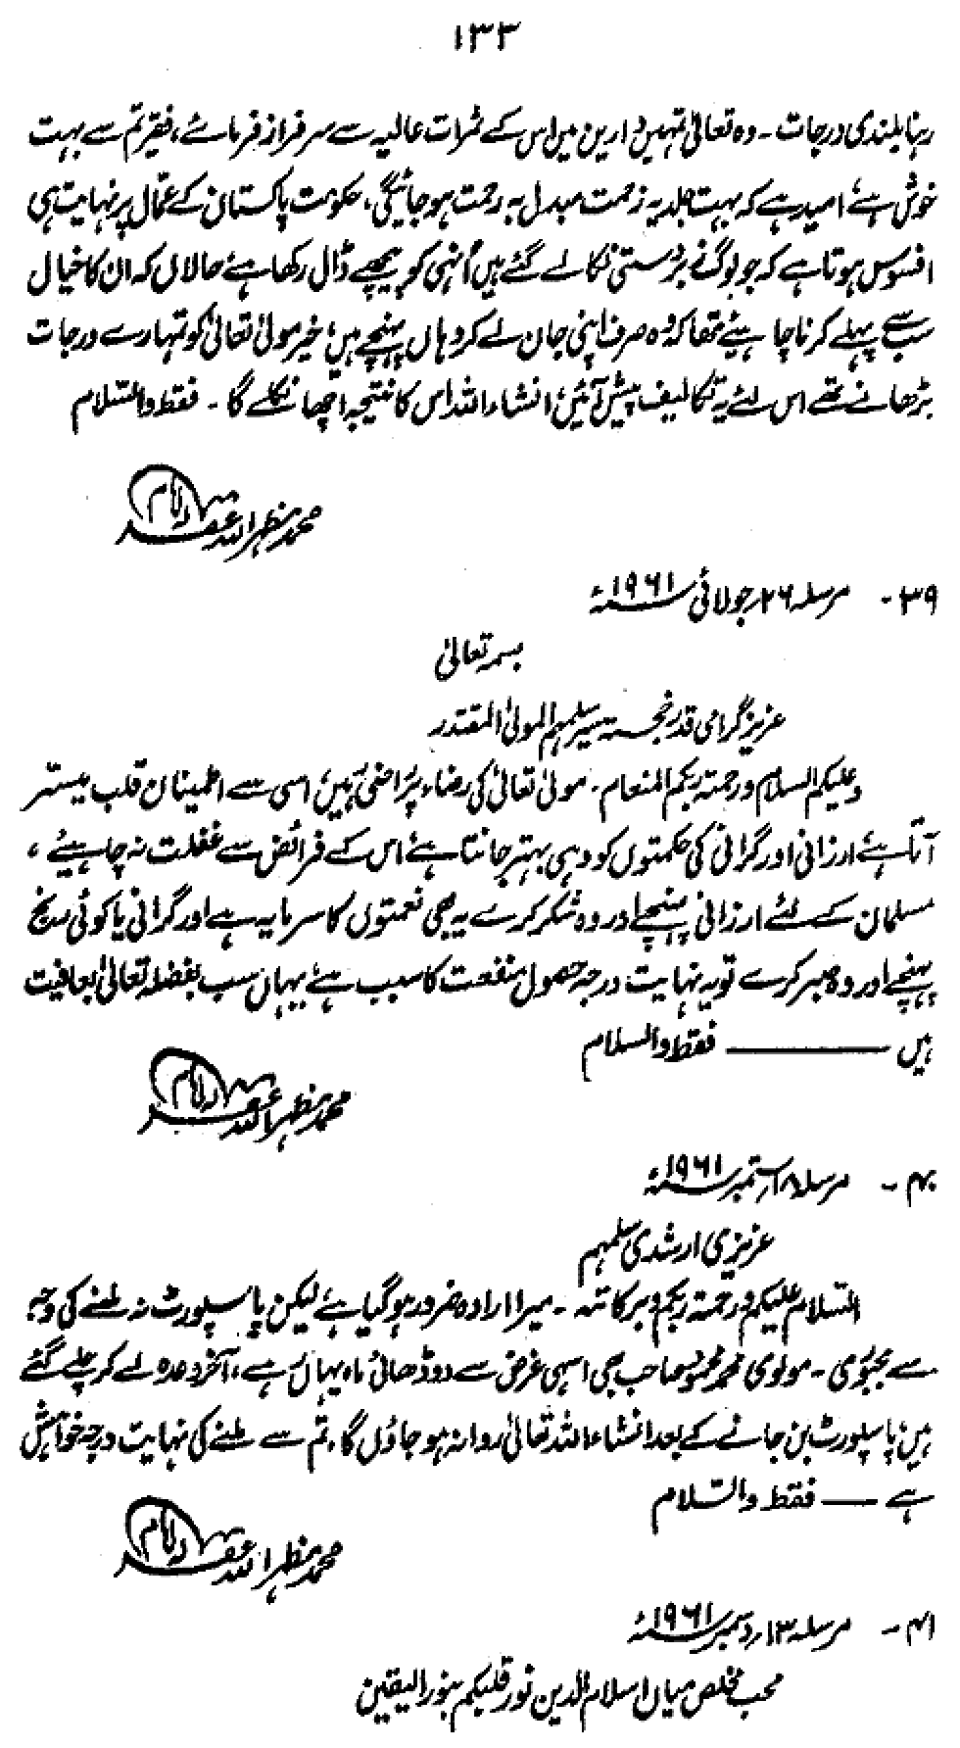 ۱۳۳
رہنا بلندی درجات۔ وہ تعالیٰ تمہیں دارین میں اس کے ثمرات عالیہ سے سرفراز فرمائے، فقیر تم سے بہت
خوش ہے، امید ہے کہ بہت جلد یہ زحمت مبدل بہ رحمت ہو جائیگی، حکومت پاکستان کے عمّال پر نہایت ہی
افسوس ہوتا ہے کہ جو لوگ زبردستی نکالے گئے ہیں اُنہی کو پیچھے ڈال رکھا ہے حالاں کہ ان کا خیال
سب سے پہلے کرنا چاہئیے تھا کہ وہ صرف اپنی جان لے کر وہاں پہنچے ہیں، خیر مولیٰ تعالیٰ کو تمہارے درجات
بڑھانے تھے اس لئے یہ تکالیف پیش آئیں، انشاء اللہ اس کا نتیجہ اچھا نکلے گا۔ فقط والسّلام
محمد مظہر اللہ غفرلہ امام
۳۹۔ مرسلہ ۲۶ رجولائی ۱۹۶۱ء
بسمہ تعالیٰ
عزیز گرامی قدر خجستہ سیر سلمہم المولیٰ المقتدر
وعلیکم السلام ورحمتہ ربکم المنعام۔ مولیٰ تعالیٰ کی رضاء پر راضی رہیں، اسی سے اطمینان قلب میسّر
آتا ہے ارزانی اور گرانی کی حکمتوں کو وہی بہتر جانتا ہے اس کے فرائض سے غفلت نہ چاہیئے،
مسلمان کے لئے ارزانی پہنچے اور وہ شکر کرے یہ بھی نعمتوں کا سرمایہ ہے اور گرانی یا کوئی رنج
پہنچے اور وہ صبر کرے تو یہ نہایت درجہ حصول منفعت کا سبب ہے، یہاں سب بفضلہ تعالیٰ بعافیت
ہیں ——— فقط والسلام
محمد مظہر اللہ غفرلہ امام
۴۰۔ مرسلہ ۱۸ ستمبر ۱۹۶۱ء
عزیزی ارشدی سلمہم
السّلام علیکم ورحمتہ ربکم وبرکاتہ۔ میرا ارادہ ضرور ہو گیا ہے، لیکن پاسپورٹ نہ ملنے کی وجہ
سے مجبوری۔ مولوی محمد محمود صاحب بھی اسہی غرض سے دو ڈھائی ماہ یہاں رہے، آخر وعدہ لے کر چلے گئے
ہیں پاسپورٹ بن جانے کے بعد انشاء اللہ تعالیٰ روانہ ہو جاؤں گا، تم سے ملنے کی نہایت درجہ خواہش
ہے —— فقط والسّلام
محمد مظہر اللہ غفرلہ امام
۴۱۔ مرسلہ ۱۳ ردسمبر ۱۹۶۱ء
محب مخلص میاں اسلام الدین نور قلبکم بنور الیقین